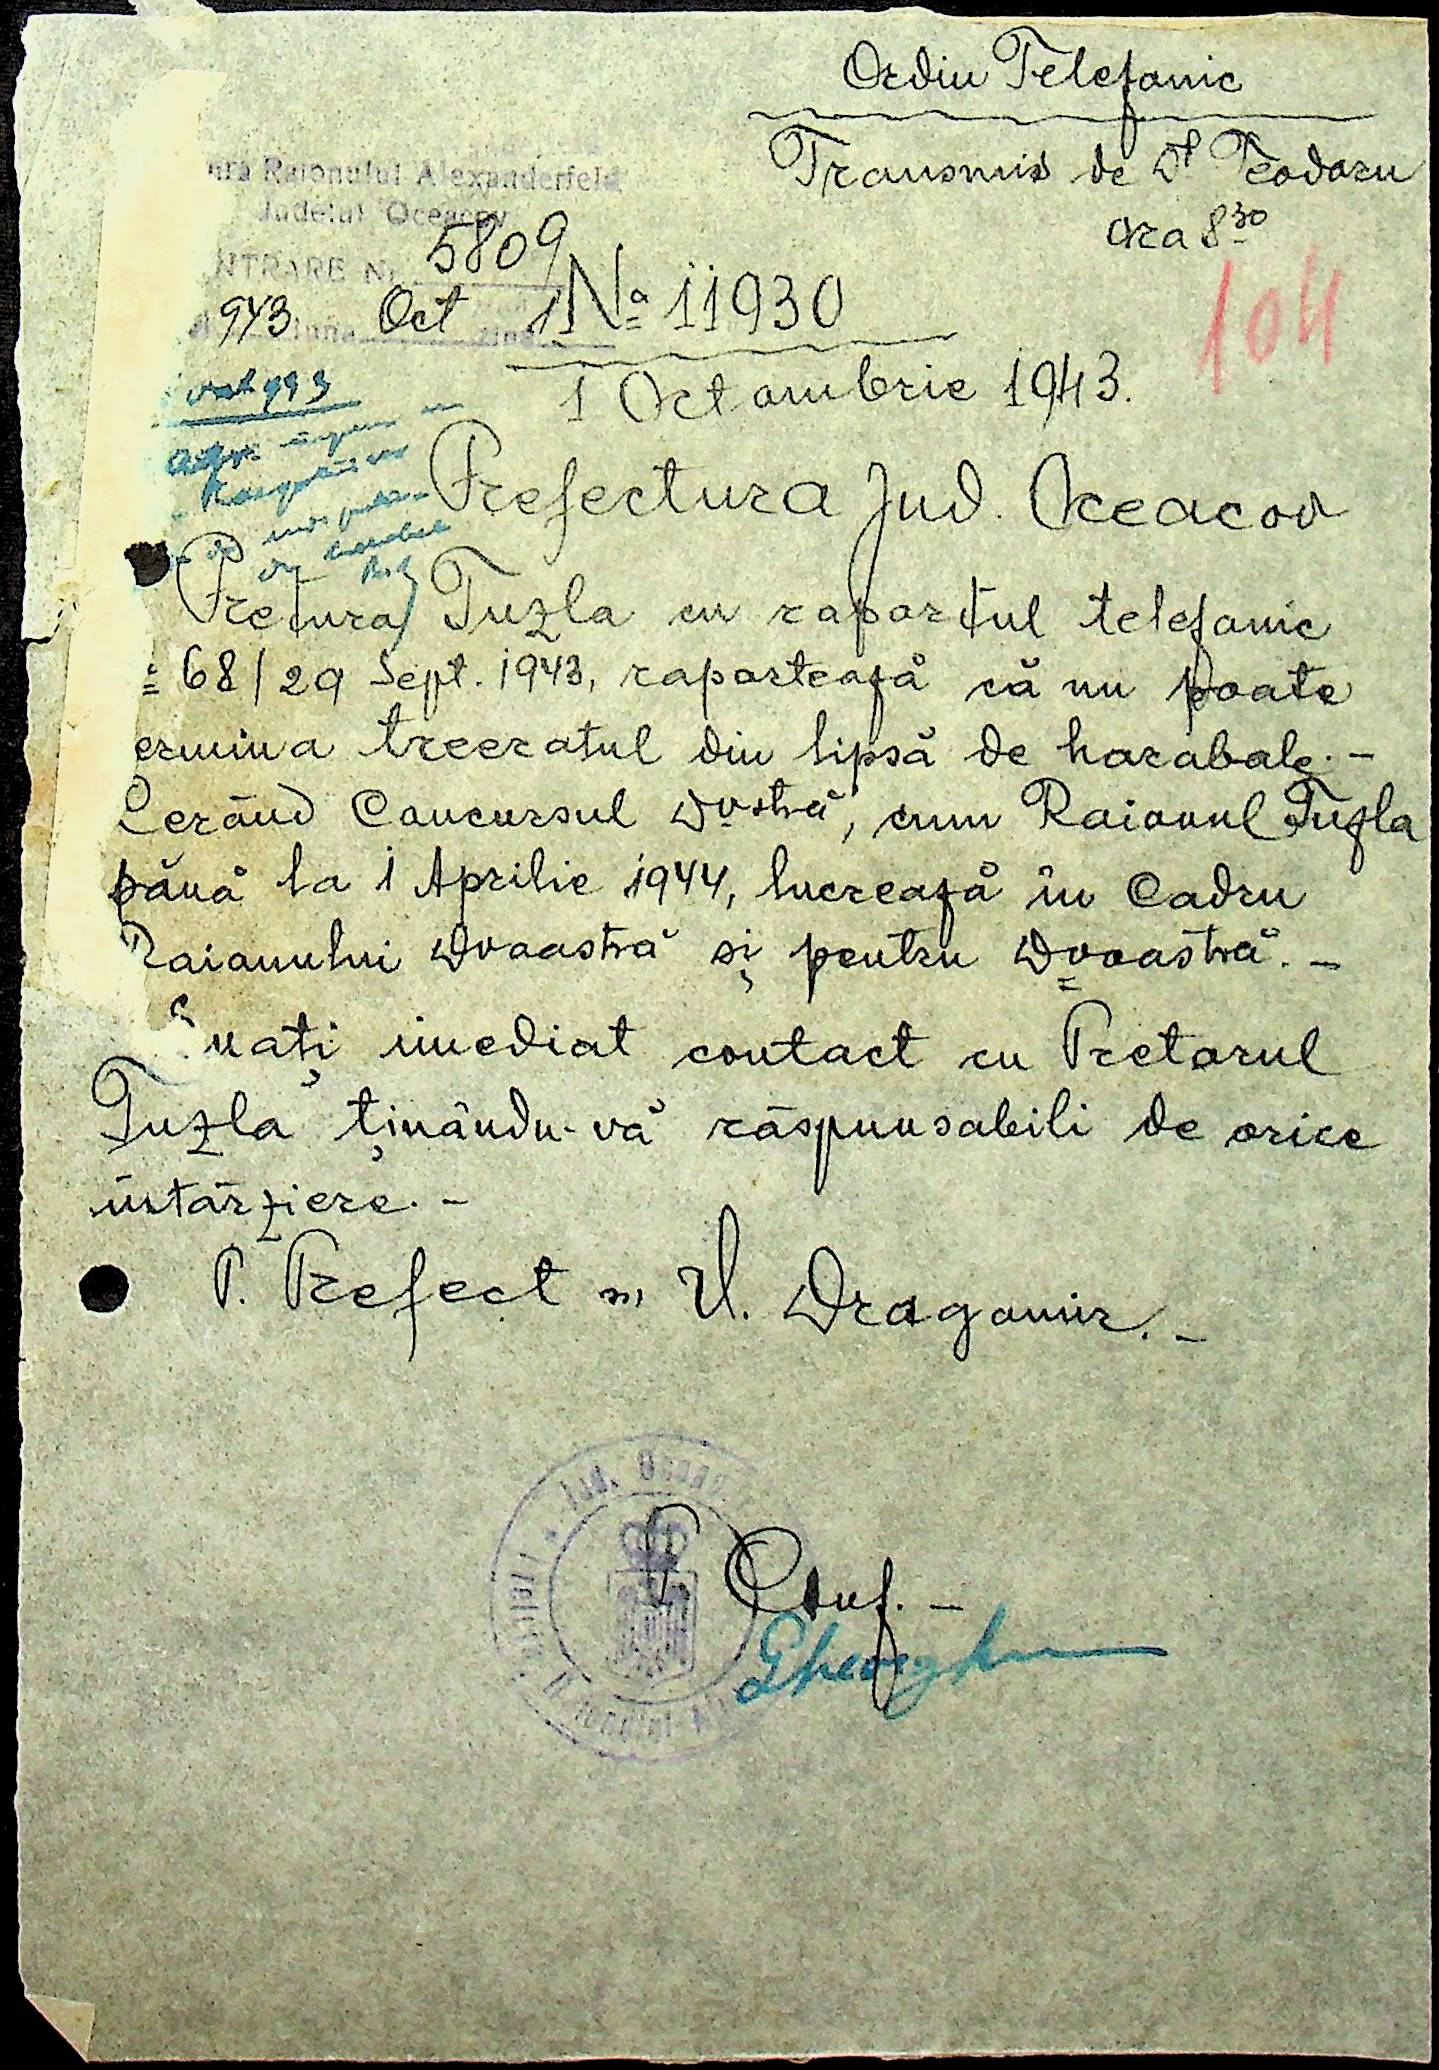 Ordin Telefonic
Transmis de Dl Teodoru
ora 8 30
Raionului Alexanderfeld
Judetul Oceacov
NTRARE Nr. 5809
943 Oct 1
No 11930
104
1 Octombrie 1943.
Oct 943
Prefectura Jud. Oceacov
Pretura Tuzla cu raportul telefonic
68/29 Sept. 1943, raportează că nu poate
ermina treeratul din lipsă de harabale. –
Cerând Concursul Dvstră, cum Raionul Tuzla
până la 1 Aprilie 1944, lucrează în Cadru
Raionului Dvoastră și pentru Dvoastră. –
uați imediat contact cu Pretorul
Tuzla ținându-vă răspunsabili de orice
întârziere. –
P. Prefect ss, V. Dragomir. –
Jud. Oceacov
P Conf. –
Gheorghe